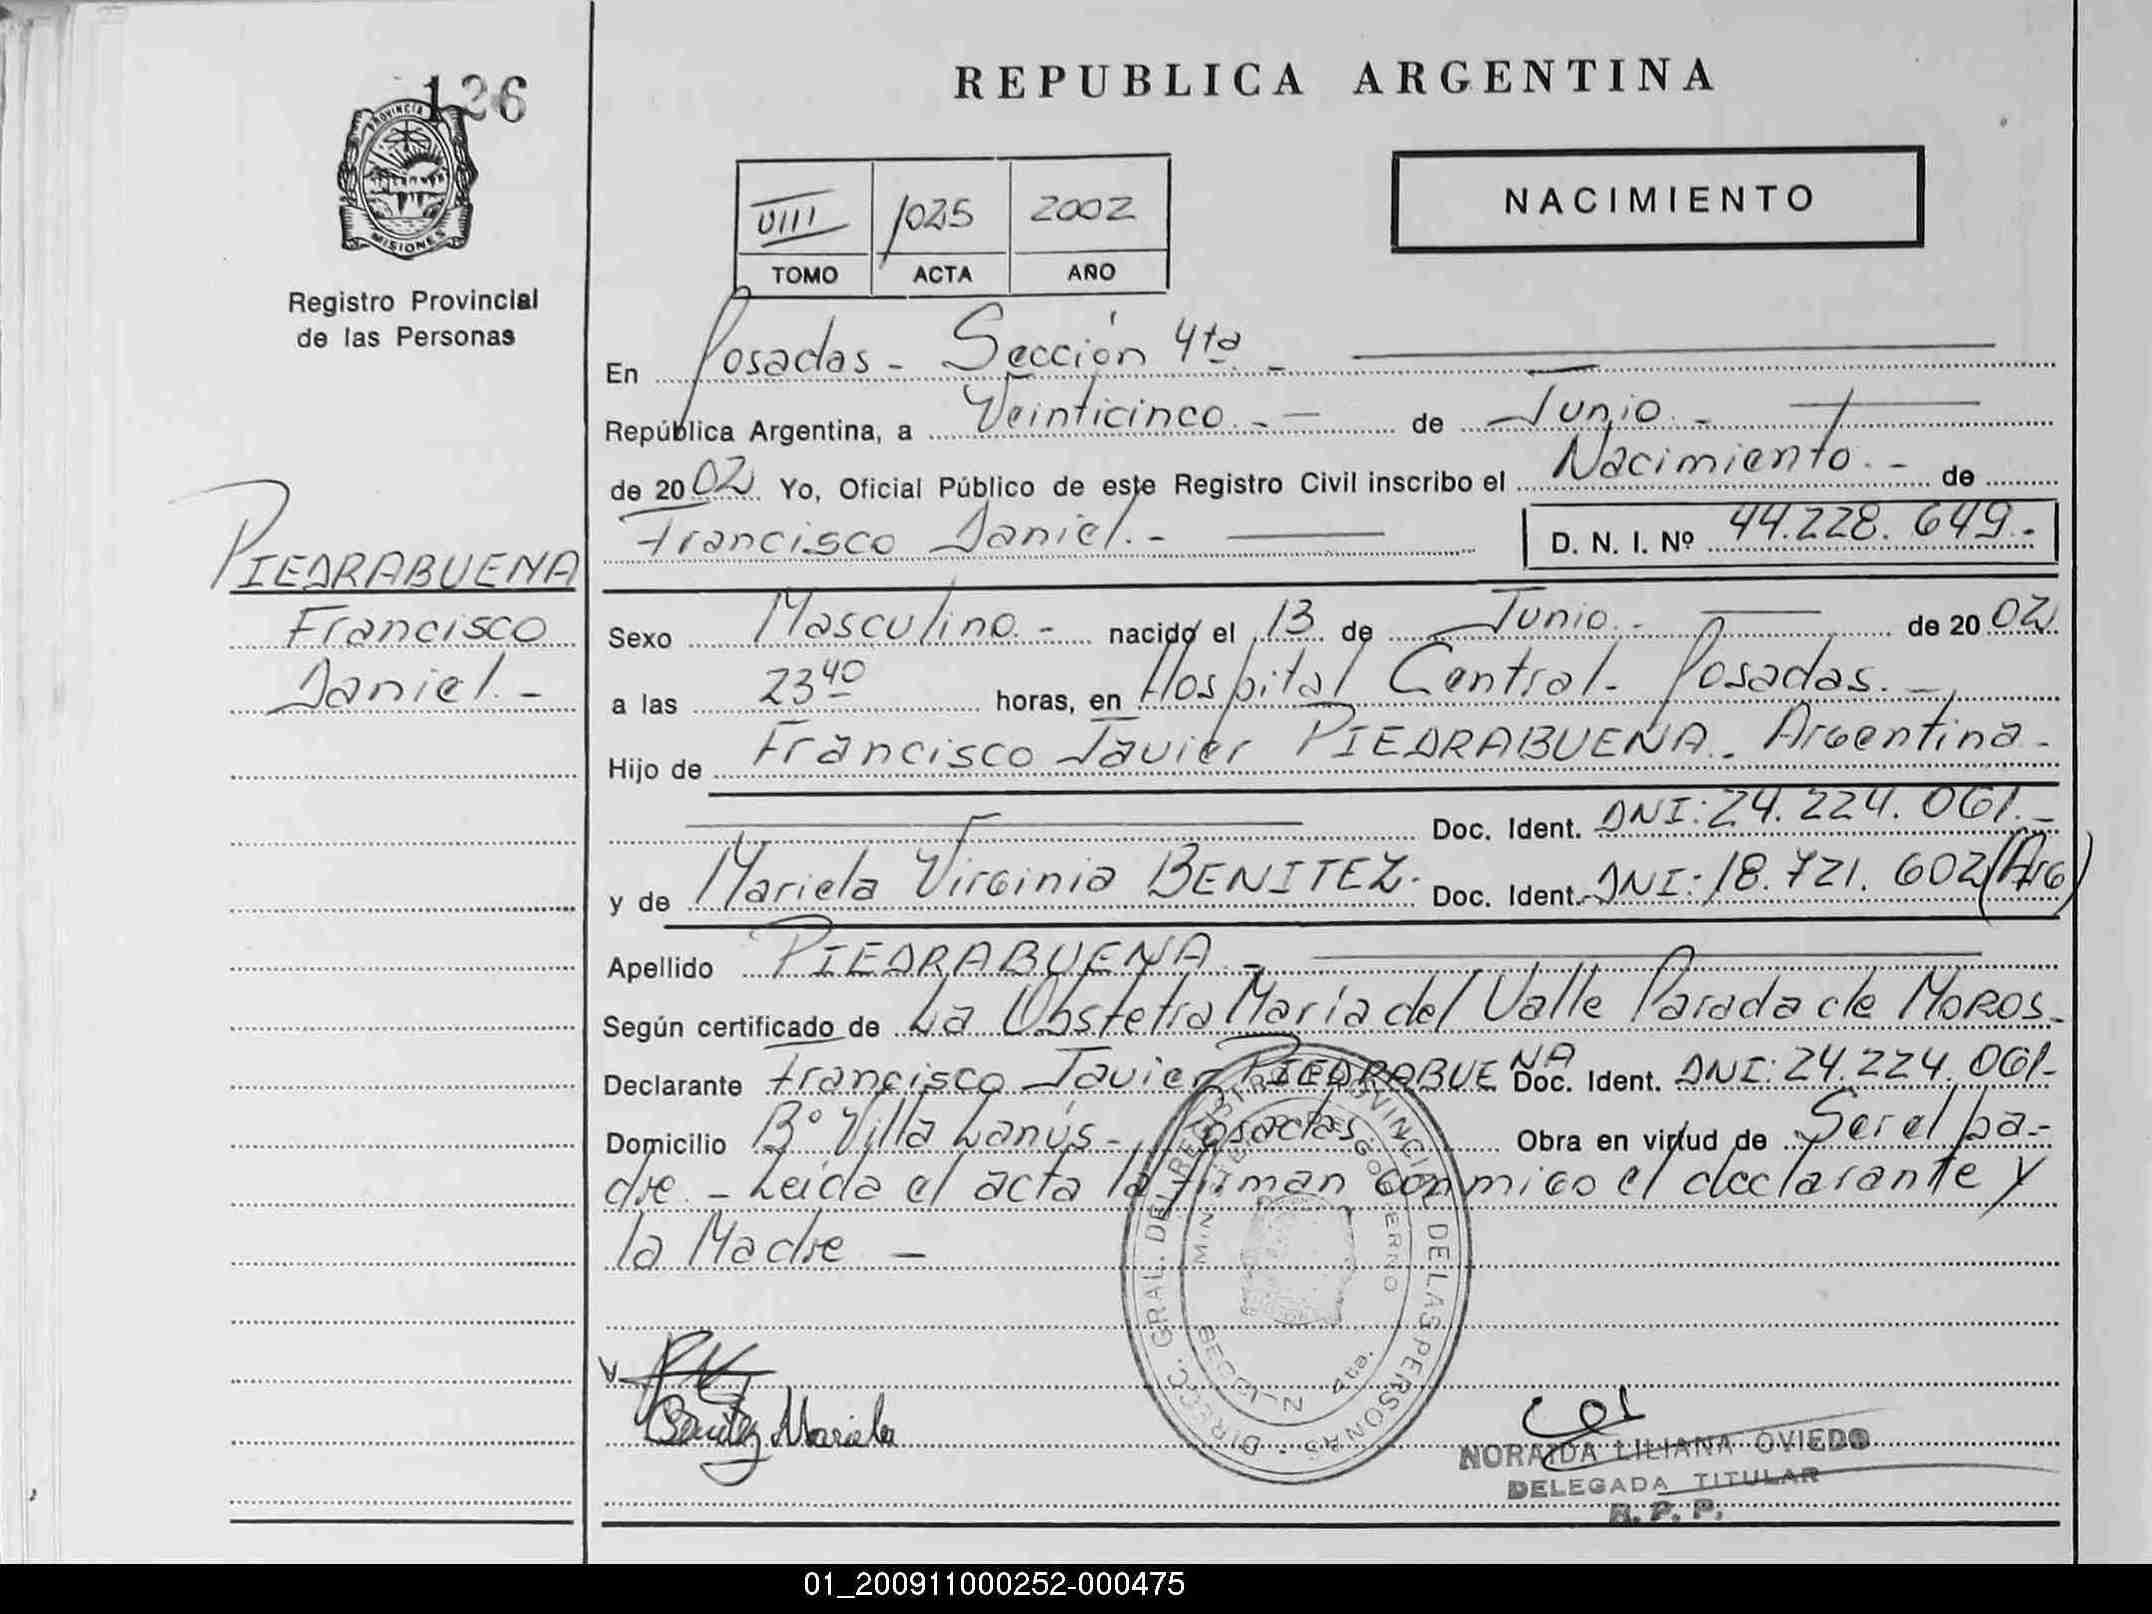 126
PROVINCIA
MISIONES
Registro Provincial
de las Personas
PIEDRABUENA
Francisco
Daniel.-
REPUBLICA ARGENTINA
NACIMIENTO
VIII 1025 2002
TOMO ACTA AÑO
En Posadas - Sección 4ta -
República Argentina, a Veinticinco.- de Junio.-
de 2002 Yo, Oficial Público de este Registro Civil inscribo el Nacimiento.- de
Francisco Daniel.- D. N. I. Nº 44.228.649.-
Sexo Masculino.- nacido el 13 de Junio.- de 2002
a las 23 40 horas, en Hospital Central- Posadas.-
Hijo de Francisco Javier PIEDRABUENA. Argentina-
Doc. Ident. DNI: 24.224.061.-
y de Mariela Virginia BENITEZ. Doc. Ident. DNI: 18.721.602 (Arg)
Apellido PIEDRABUENA.-
Según certificado de La Obstetra María del Valle Parada de MOROS-
Declarante Francisco Javier PIEDRABUENA Doc. Ident. DNI: 24.224.061-
Domicilio Bº Villa Lanús- Posadas. Obra en virtud de Ser el pa-
dre.- Leída el acta la firman conmigo el declarante y
la Madre -
DIRECC. GRAL. DEL REGISTRO PROVINCIAL DE LAS PERSONAS
Benitez Mariela
NORAIDA LILIANA OVIEDO
DELEGADA TITULAR
R. P. P.
01_200911000252-000475